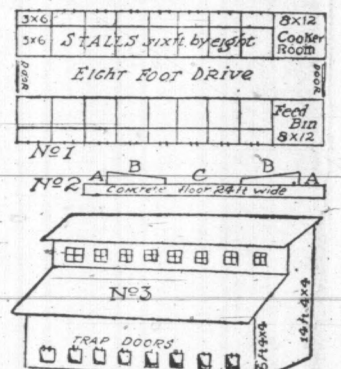 3x6
5x6 STALLS six ft. by eight
8X12 Cooker Room
DOOR EIGHT FOOT DRIVE DOOR
Feed Bin 8X12
No1
B B
A C A
No2 Concrete floor 24 ft wide
No3
14 ft. 4x4
TRAP DOORS
5 ft 4x4